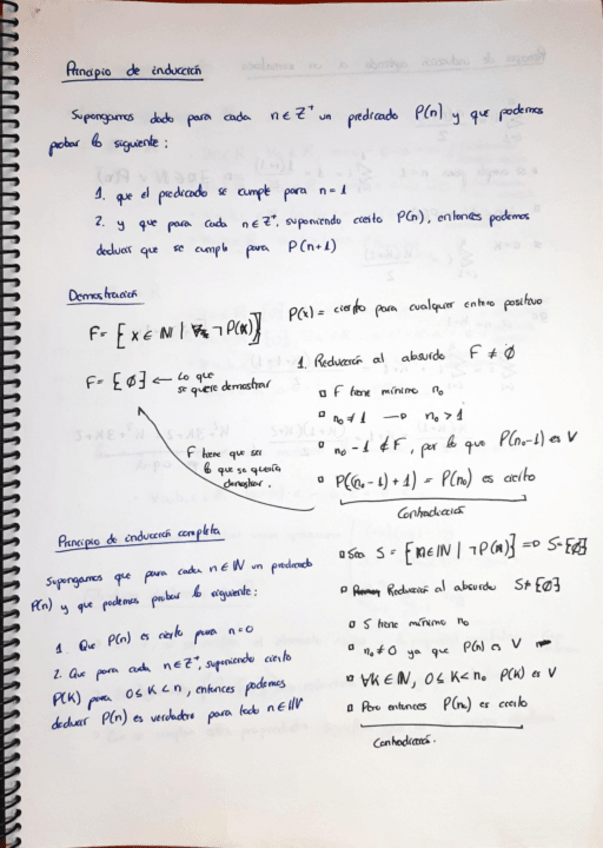 Principio de inducción
Supongamos dado para cada n ∈ Z⁺ un predicado P(n) y que podemos
probar lo siguiente:
1. que el predicado se cumple para n = 1
2. y que para cada n ∈ Z⁺, suponiendo cierto P(n), entonces podemos
deducir que se cumple para P(n+1)
Demostración
F = [x ∈ N | ¬P(x)]
F = [∅] ← Lo que
se quiere demostrar
F tiene que ser
lo que se quería
demostrar.
P(x) = cierto para cualquier entero positivo
1. Reducción al absurdo F ≠ ∅
▫ F tiene mínimo n₀
▫ n₀ ≠ 1 → n₀ > 1
▫ n₀ - 1 ∉ F, por lo que P(n₀-1) es V
▫ P((n₀-1)+1) = P(n₀) es cierto
Contradicción
Principio de inducción completa
Supongamos que para cada n ∈ IN un predicado
P(n) y que podemos probar lo siguiente:
1. Que P(n) es cierto para n=0
2. Que para cada n ∈ Z⁺, suponiendo cierto
P(K) para 0 ≤ K < n, entonces podemos
deducir P(n) es verdadero para todo n ∈ IN
▫ Sea S = [n ∈ IN | ¬P(n)] => S = [∅]
▫ Reducción al absurdo S ≠ [∅]
▫ S tiene mínimo n₀
▫ n₀ ≠ 0 ya que P(n) es V
▫ ∀K ∈ IN, 0 ≤ K < n₀ P(K) es V
▫ Pero entonces P(n₀) es cierto
Contradicción.